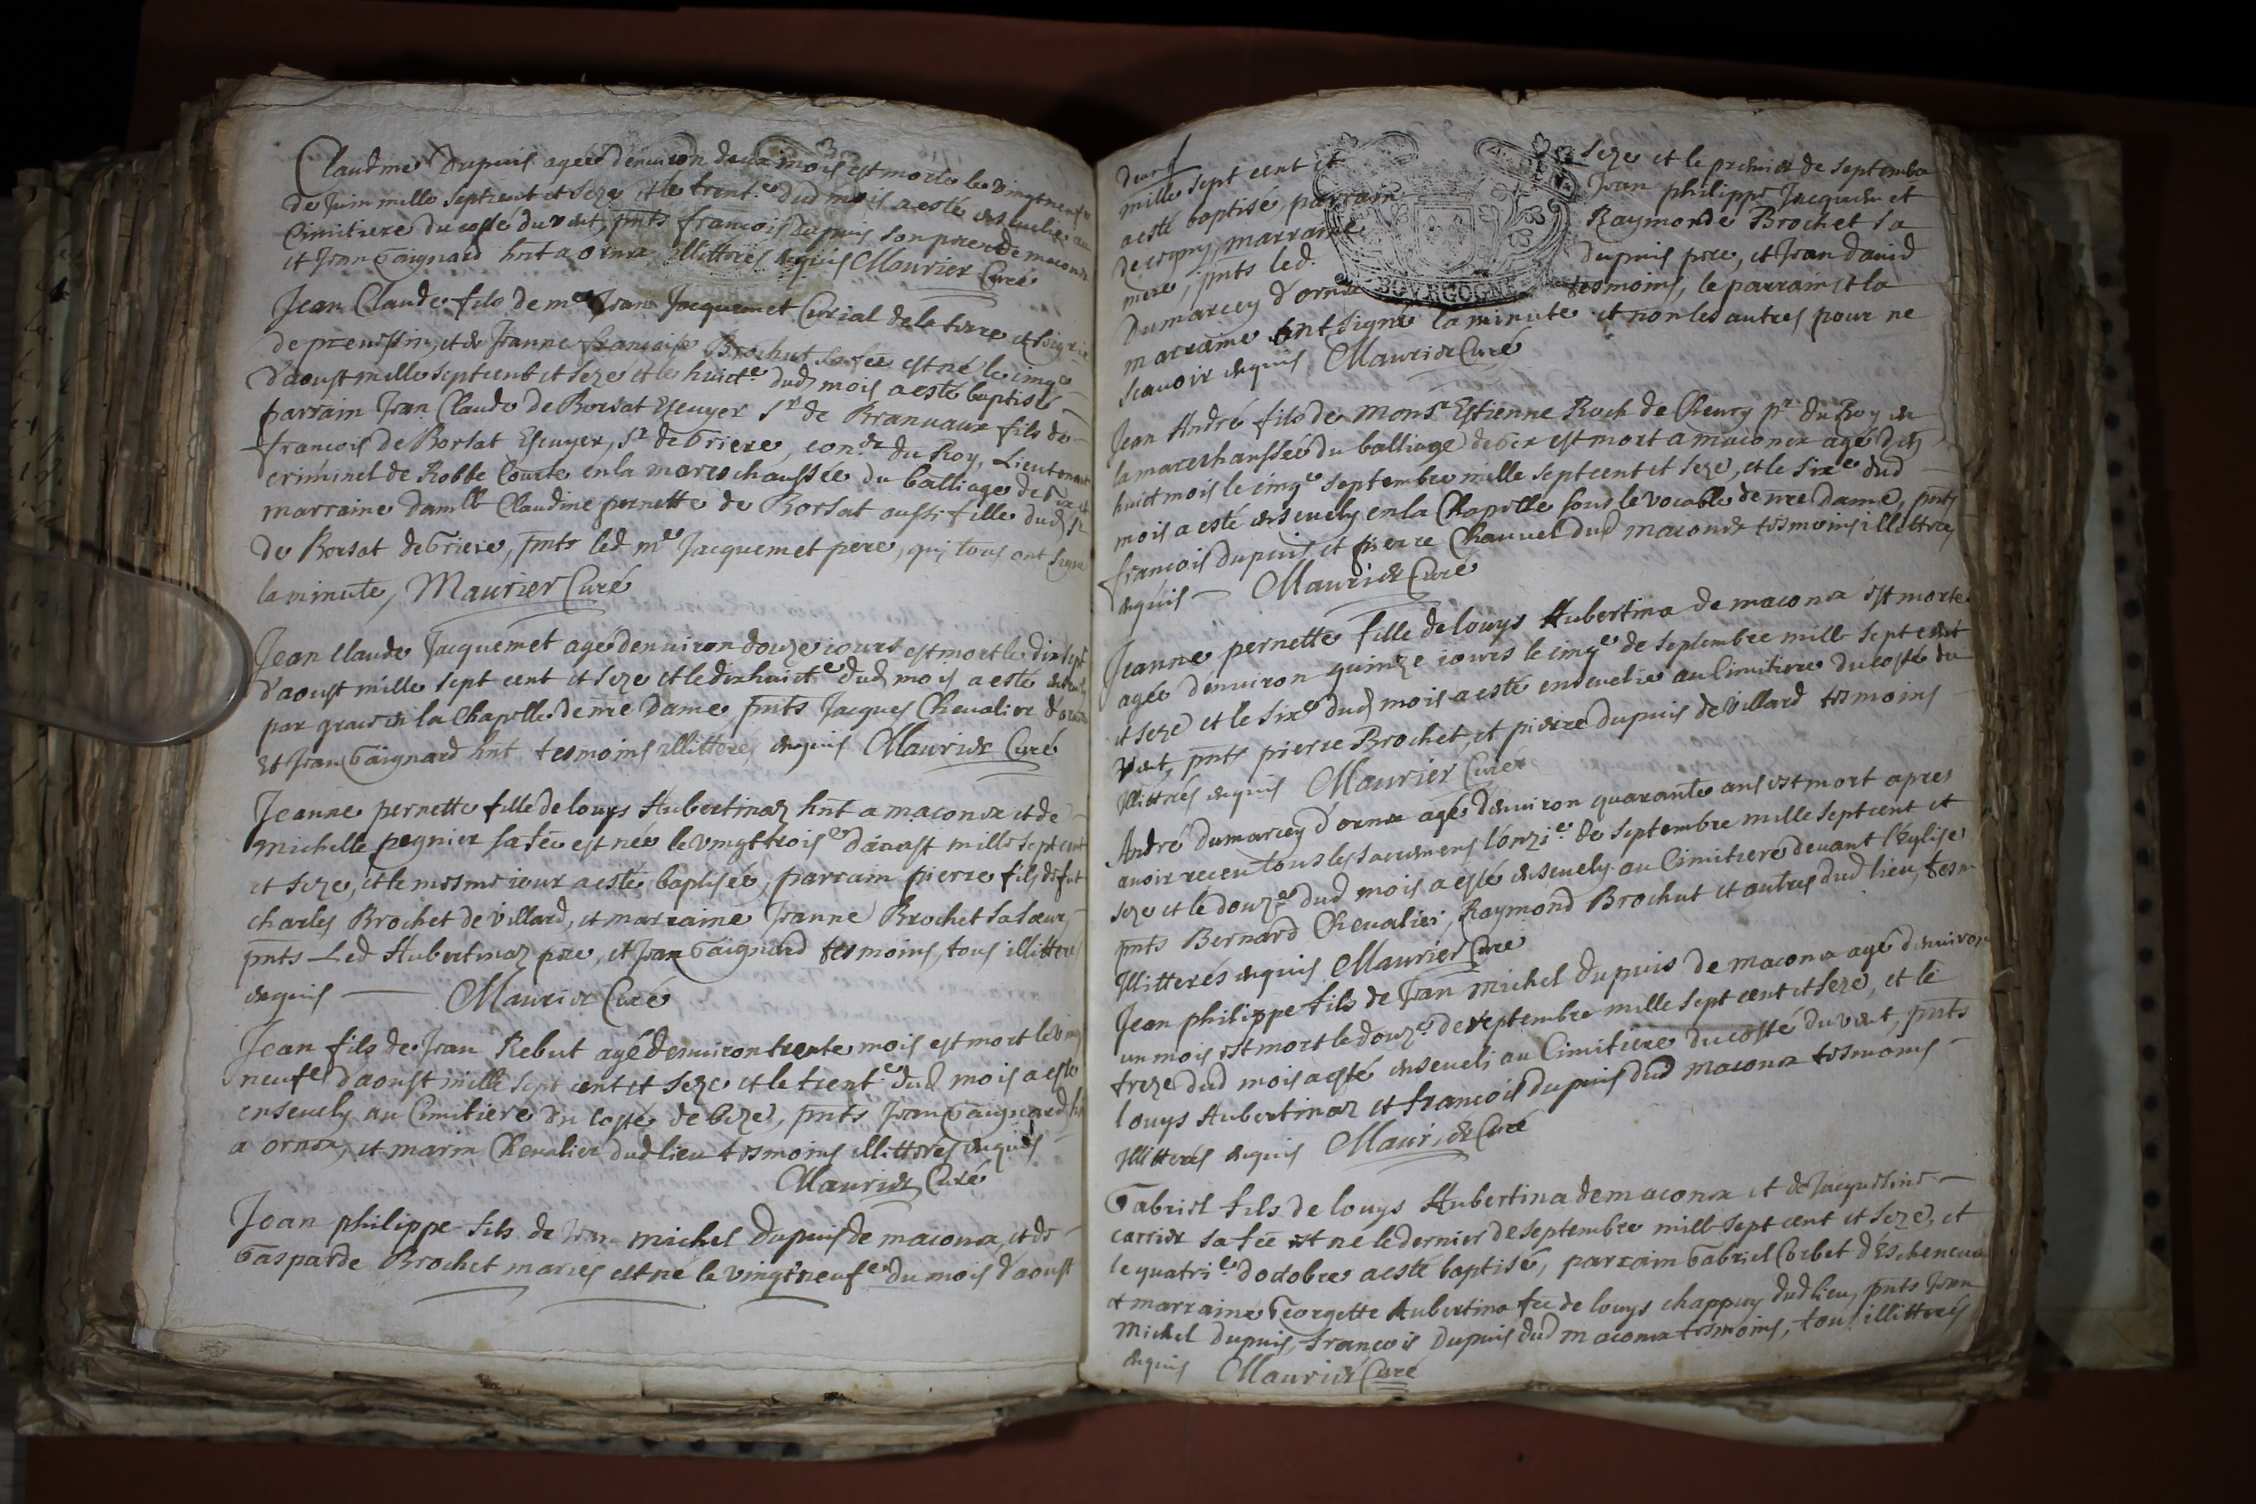 Claudine Dupuis agée denuiron deux mois est morte le vingtneufe
de Juin mille septcent et seze et le trente dud mois a esté enseuelie au
Cimitiere du costé du vent, pnts francois Dupuis son pere de maconex
et Jean Gaignard hnt a ornex illitterés enquis Maurier Curé
Jean Claude fils de me Jean Jacquemet Curial de la terre et seigrie
de preuessin, et de Jeanne francoise Brochut sa fee est né le cinqe
d'aoust mille septcent et seze et le huicte dud mois a esté baptisé
parrain Jean Claude de Borsat Escuyer Sr de Branuaux fils de
francois de Borsat Escuyer, Sr de Griere, conser du Roy, Lieutenant
criminel de Robbe Courte en la mareschaussée du balliage de Gex et
marraine damlle Claudine pernette de Borsat aussi fille dud Sr
de Borsat de Griere, pnts led me Jacquemet pere, qui tous ont signé
la minute, Maurier Curé
Jean Claude Jacquemet agé denuiron douze iours est mort le dixsept
d'aoust mille sept cent et seze et le dixhuicte dud mois a esté enseuely
par grace en la Chapelle de nre Dame, pnts Jacques Cheualier d'ornex
Et Jean Gaignard hnt tesmoins illitterés enquis Maurier Curé
Jeanne pernette fille de louys Hubertinaz hnt a maconex et de
michelle pegnier sa fee est née le vingttroise d'aoust mille septcent
et seze, et le mesme iour a esté baptisée, parrain pierre fils de fut
charles Brochet de villard, et marraine Jeanne Brochet sa soeur,
pnts Led Hubertinaz pere, et Jean Gaignard tesmoins, tous illitterés
enquis Maurier Curé
Jean fils de Jean Rebut agé denuiron trente mois est mort le vingt
neufe d'aoust mille sept cent et seze et le trente dud mois a esté
enseuely au Cimitiere du costé de bize, pnts Jean Gaignard hnt
a ornex, et marin Cheualier dud lieu tesmoins illitterés enquis
Maurier Curé
Jean philippe fils de Jean michel Dupuis de maconex, et de
Gasparde Brochet mariés est né le vingt neufe du mois d'aoust
mille sept cent et seze et le premier de septembre
a esté baptisé, parrain Jean philippe Jacquemet et
marraine Raymonde Brochet sa
mere, pnts led. Dupuis pere, et Jean Dauid
Dumarcey d'ornex tesmoins, le parrain et la
marraine ont signé la minute et non les autres pour ne
scauoir enquis Maurier Curé
BOVRGOGNE
Jean André fils de Monsr Estienne Roch de Cheury pr du Roy en
la mareschaussée du balliage de Gex est mort a maconex agé de
huict mois le cinqe septembre mille septcent et seze, et le sixe dud
mois a esté enseuely en la Chapelle sous le vocable de nre Dame, pnts
francois Dupuis et pierre Chauuet dud maconex tesmoins illitterés
enquis Maurier Curé
Jeanne pernette fille de louys Hubertina de maconex est morte
agée denuiron quinze iours le cinqe de septembre mille septcent
et seze et le sixe dud mois a esté enseuelie au Cimitiere du costé du
vent, pnts pierre Brochet, et pierre Dupuis de Villard tesmoins
Illitterés enquis Maurier Curé
André dumarcey d'ornex agé denuiron quarante ans est mort apres
auoir receu tous les sacremens l'onzie. de septembre mille septcent et
seze et le douze dud mois a esté enseuely au Cimitiere deuant l'Eglise
pnts Bernard Cheualier, Raymond Brochut et autres dud lieu, tesm
Illitterés enquis Maurier Curé
Jean philippe fils de Jean michel Dupuis de maconex agé denuiron
un mois est mort le douze de septembre mille sept cent et seze, et le
treze dud mois a esté enseueli au Cimitiere du costé du vent, pnts
louys Hubertinaz et francois Dupuis dud maconex tesmoins
Illitterés enquis Maurier Curé
Gabriel fils de louys Hubertina de maconex et de Jacqueline
carrier sa fee est né le dernier de septembre mille sept cent et seze, et
le quatrie d'octobre a esté baptisé, parrain Gabriel Corbet d'Escheneuex
et marraine Georgette Hubertina fee de louys chappuy dud lieu, pnts Jean
Michel Dupuis, francois Dupuis dud maconex tesmoins, tous illitterés
enquis Maurier Curé